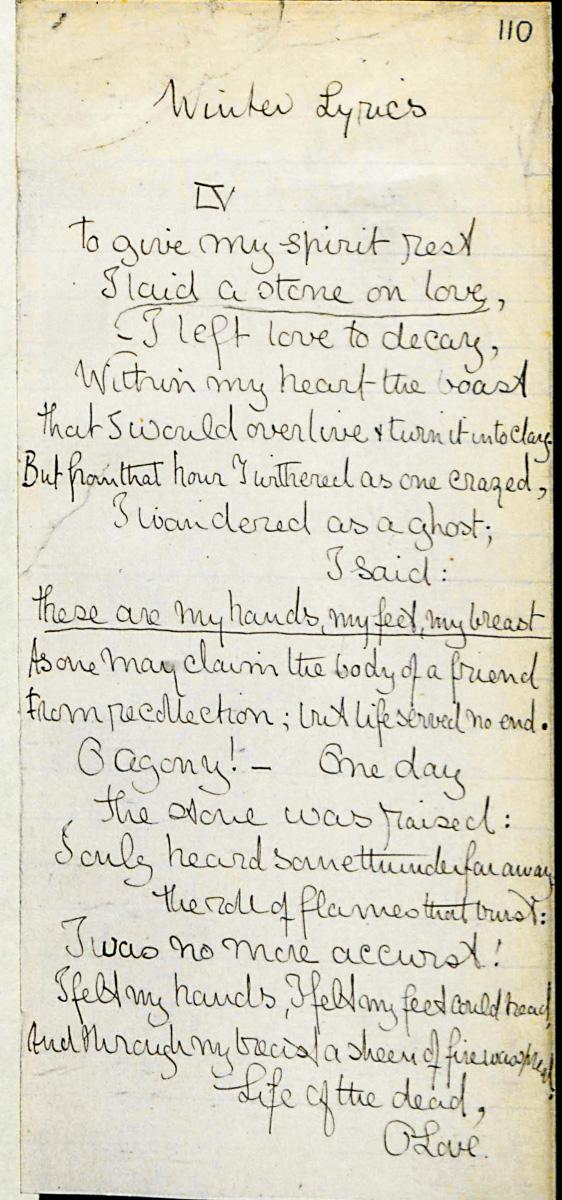 110
Winter Lyrics
IV
To give my spirit rest
I laid a stone on love,
- I left love to decay,
Within my heart the boast
That I would overlive & turn it into clay.
But from that hour I withered as one crazed,
I wandered as a ghost;
I said:
These are my hands, my feet, my breast
As one may claim the body of a friend
From recollection; but life served no end.
O agony! – One day
The stone was raised:
I only heard some thunder far away,
The roll of flames that burst:
I was no more accurst!
I felt my hands, I felt my feet could tread,
And through my breast a sheen of fire was spread.
Life of the dead,
O Love.